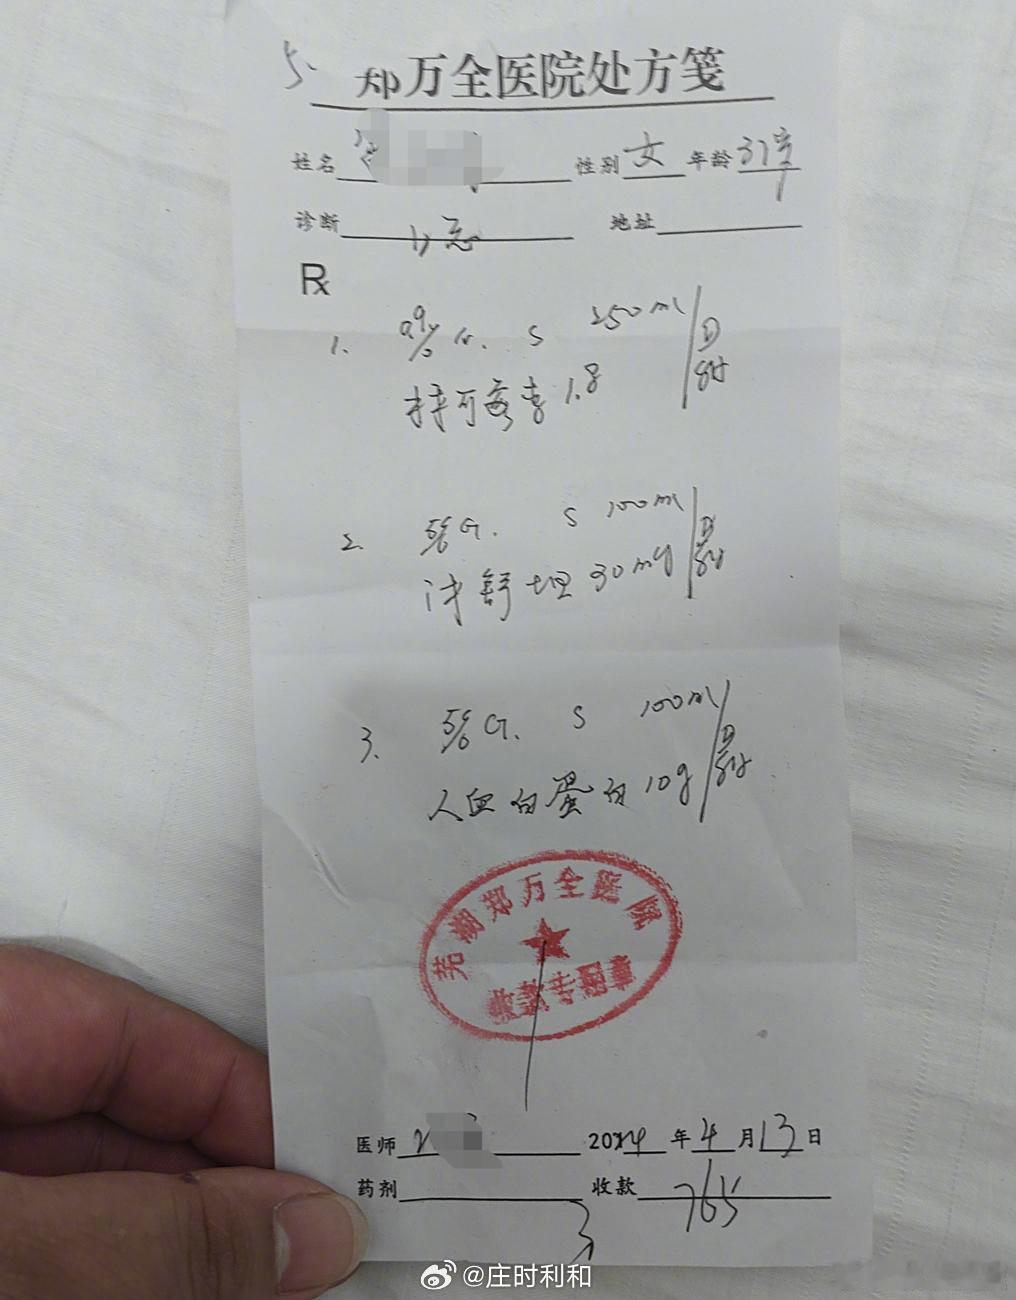 郑万全医院处方笺
姓名 性别 女 年龄 37岁
诊断 地址
Rx
1. 0.9% N. S 250ml
1.8
2. 5% G. S 100ml
沐舒坦 30mg
3. 5% G. S 100ml
人血白蛋白 10g
芜湖郑万全医院
收款专用章
医师 2024年4月13日
药剂 收款 765
@庄时利和